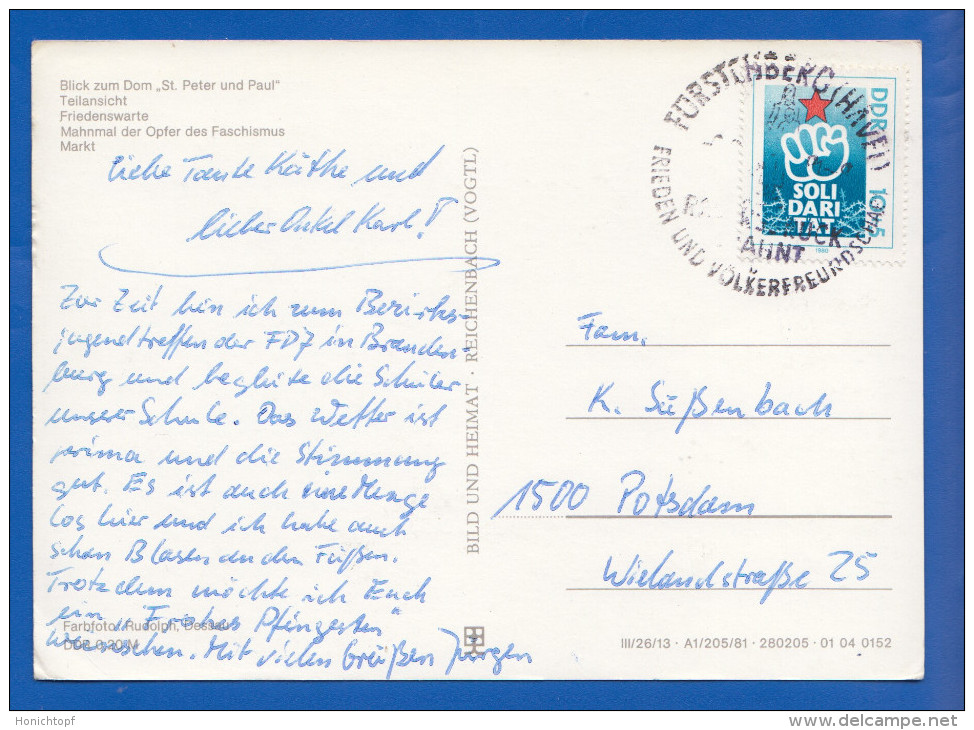 Blick zum Dom „St. Peter und Paul"
Teilansicht
Friedenswarte
Mahnmal der Opfer des Faschismus
Markt
Liebe Tante Käthe und
lieber Onkel Karl!
Zur Zeit bin ich zum Bezirks-
jugendtreffen der FDJ in Branden-
burg und begleite die Schüler
unserer Schule. Das Wetter ist
prima und die Stimmung
gut. Es ist auch eine Menge
los hier und ich habe auch
schon Blasen an den Füßen.
Trotzdem möchte ich Euch
ein „Frohes Pfingsten"
wünschen. Mit vielen Grüßen Jürgen
Farbfoto: Rudolph, Dessau
DDR 0,20 M
BILD UND HEIMAT · REICHENBACH (VOGTL)
FÜRSTENBERG (HAVEL)
MAHNT
FRIEDEN UND VÖLKERFREUNDSCHAFT
DDR
10+5
SOLI
DARI
TÄT
1980
Fam.
K. Süßenbach
1500 Potsdam
Wielandstraße 25
III/26/13 · A1/205/81 · 280205 · 01 04 0152
Honichtopf
www.delcampe.net